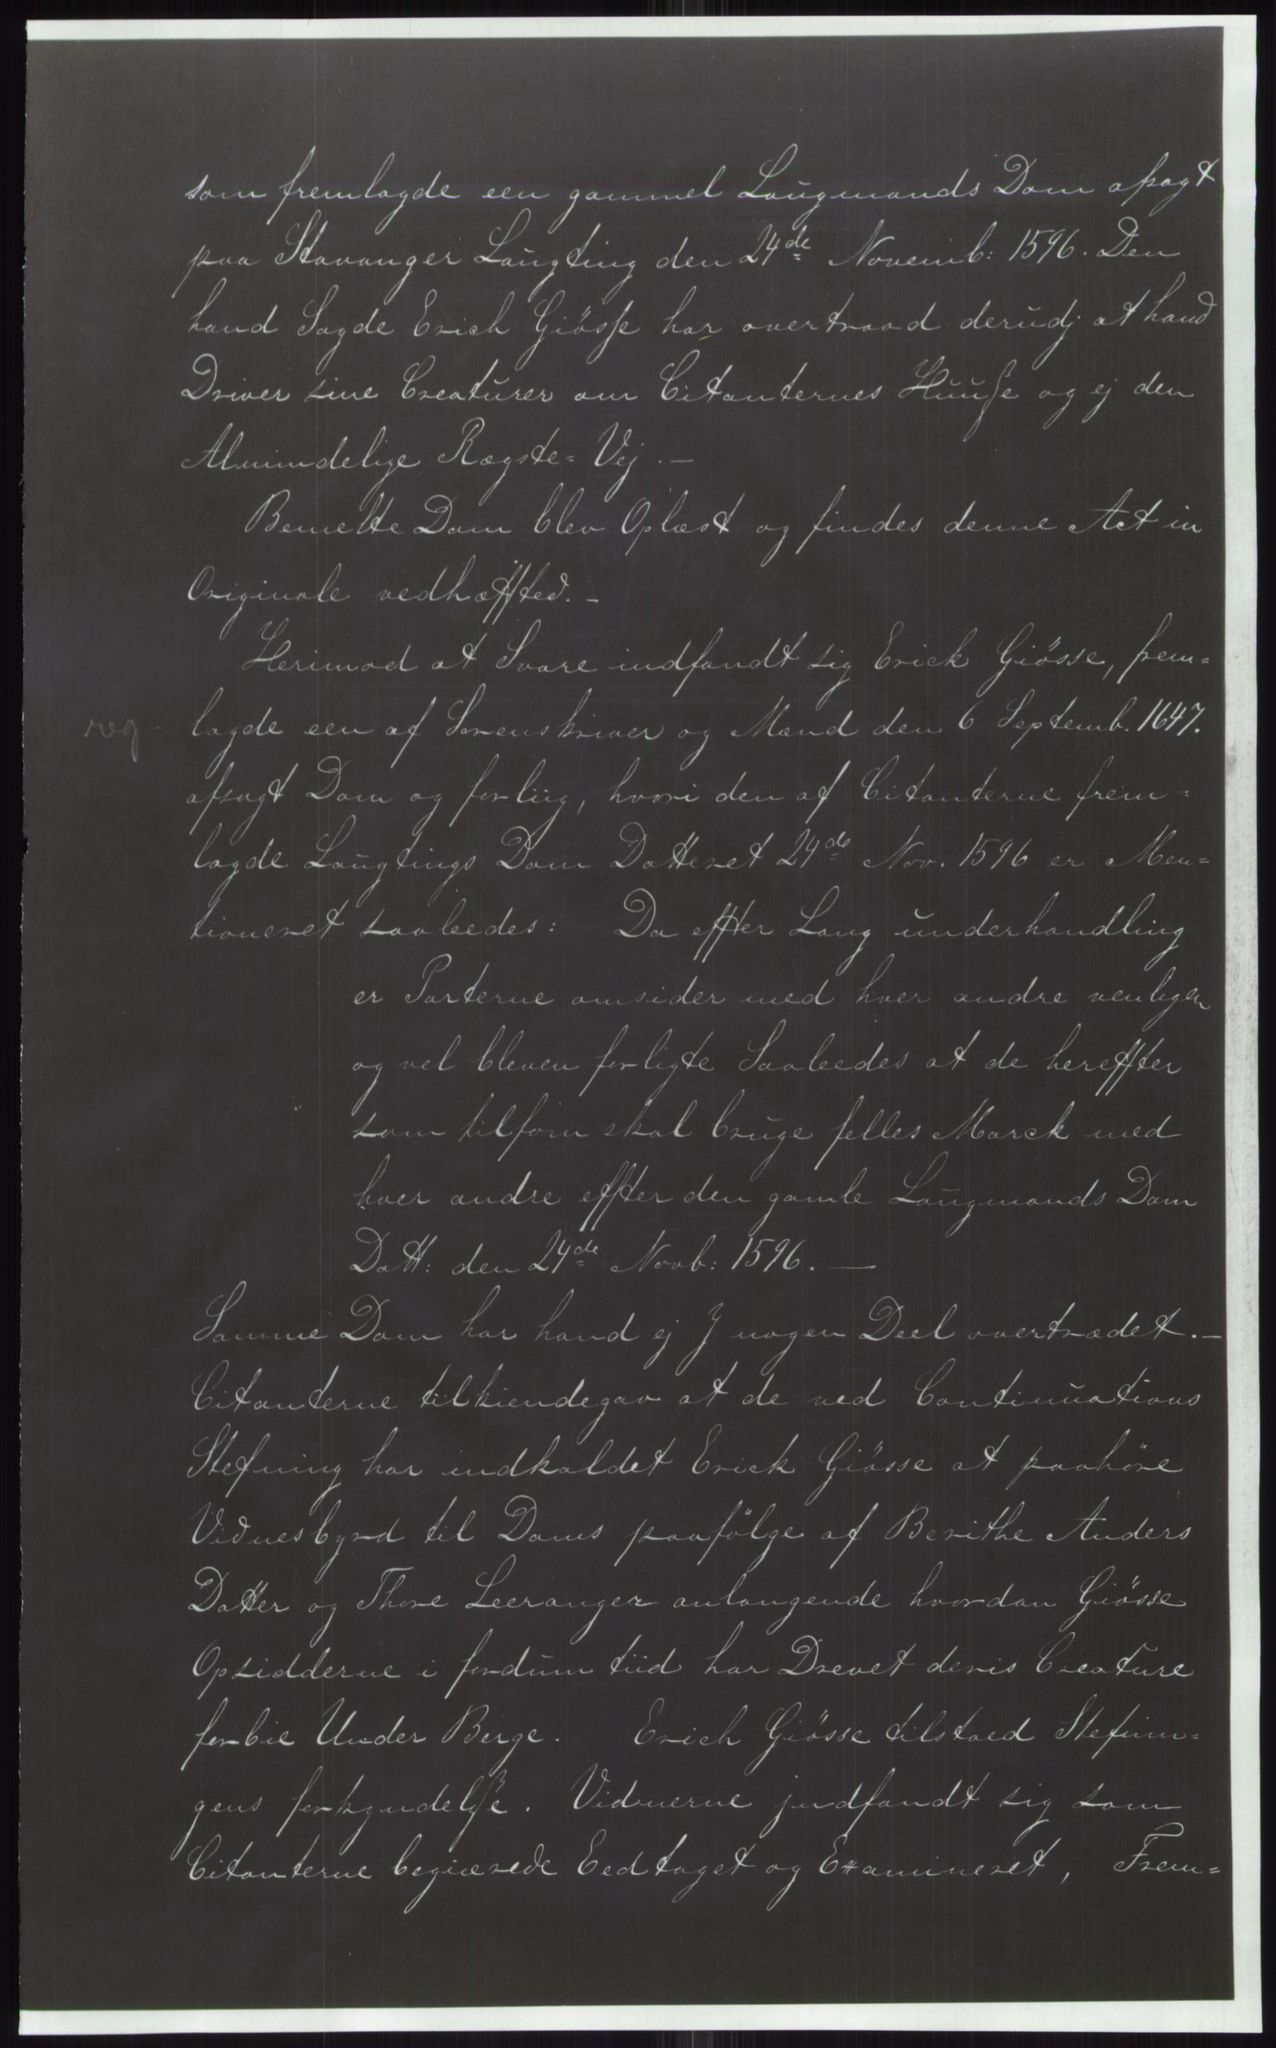 som fremlagde een gammel Laugmands Dom afsagt
paa Stavanger Laugting den 24de Novemb: 1596. Den
hand Sagde Erich Giösse har overtraad derudj at hand
Driver sine Creaturer om Citanternes Huuse og ej den
Almindelige Rægste= Vej. —
Bemelte Dom blev Oplæst og findes denne Act in
Originale vedhæffted. —
Herimod at Svare indfandt sig Erick Giösse, frem=
reg
lagde een af Sorenskriver og Mænd den 6 Septemb. 1647.
afsagt Dom og forliig, hvori den af Citanterne frem=
lagde Laugtings Dom Datteret 24de Nov. 1596 er Men=
tioneret saaleedes: Da effter Lang underhandling
er Parterne omsider med hver andre venligen
og vel bleven forligte Saaleedes at de hereffter
som tilforn skal bruge felles Marck med
hver andre effter den gamle Laugmands Dom
Datt: den 24de Novb: 1596. —
Samme Dom har hand ej J nogen Deel overtrædet. —
Citanterne tilkiendegav at de ved Continuations
Stefning har indkaldet Erick Giösse at paahöre
Vidnesbyrd til Doms paafölge af Berithe Anders
Datter og Thore Leeranger anlangende hvordan Giösse
Opsidderne i fordum tiid har Drevet deris Creature
forbie Under Berge. Erich Giösse tilstoed Stefnin=
gens forkyndelse. Vidnerne jndfandt sig som
Citanterne begierede Eedtaget og Examineret, Frem=